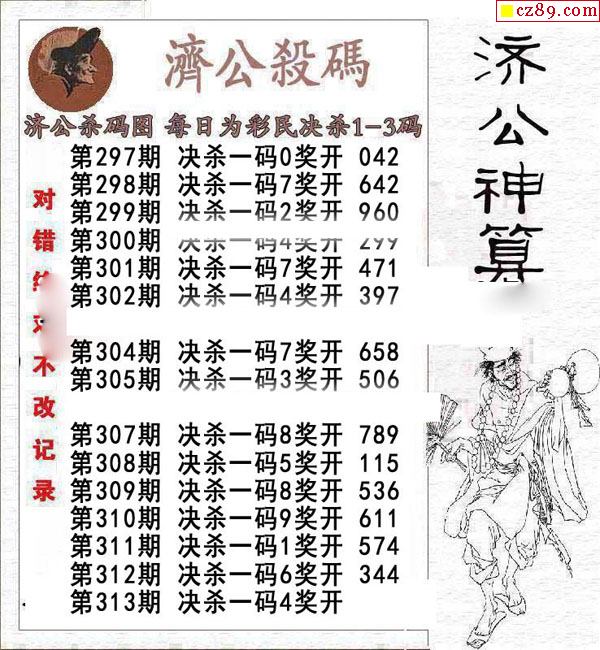 cz89.com
濟公殺碼
济公神算
济公杀码图 每日为彩民决杀1-3码
第297期 决杀一码0奖开 042
第298期 决杀一码7奖开 642
第299期 决杀一码2奖开 960
第300期 决杀一码4奖开 299
第301期 决杀一码7奖开 471
第302期 决杀一码4奖开 397
第304期 决杀一码7奖开 658
第305期 决杀一码3奖开 506
第307期 决杀一码8奖开 789
第308期 决杀一码5奖开 115
第309期 决杀一码8奖开 536
第310期 决杀一码9奖开 611
第311期 决杀一码1奖开 574
第312期 决杀一码6奖开 344
第313期 决杀一码4奖开
对错 不改记录